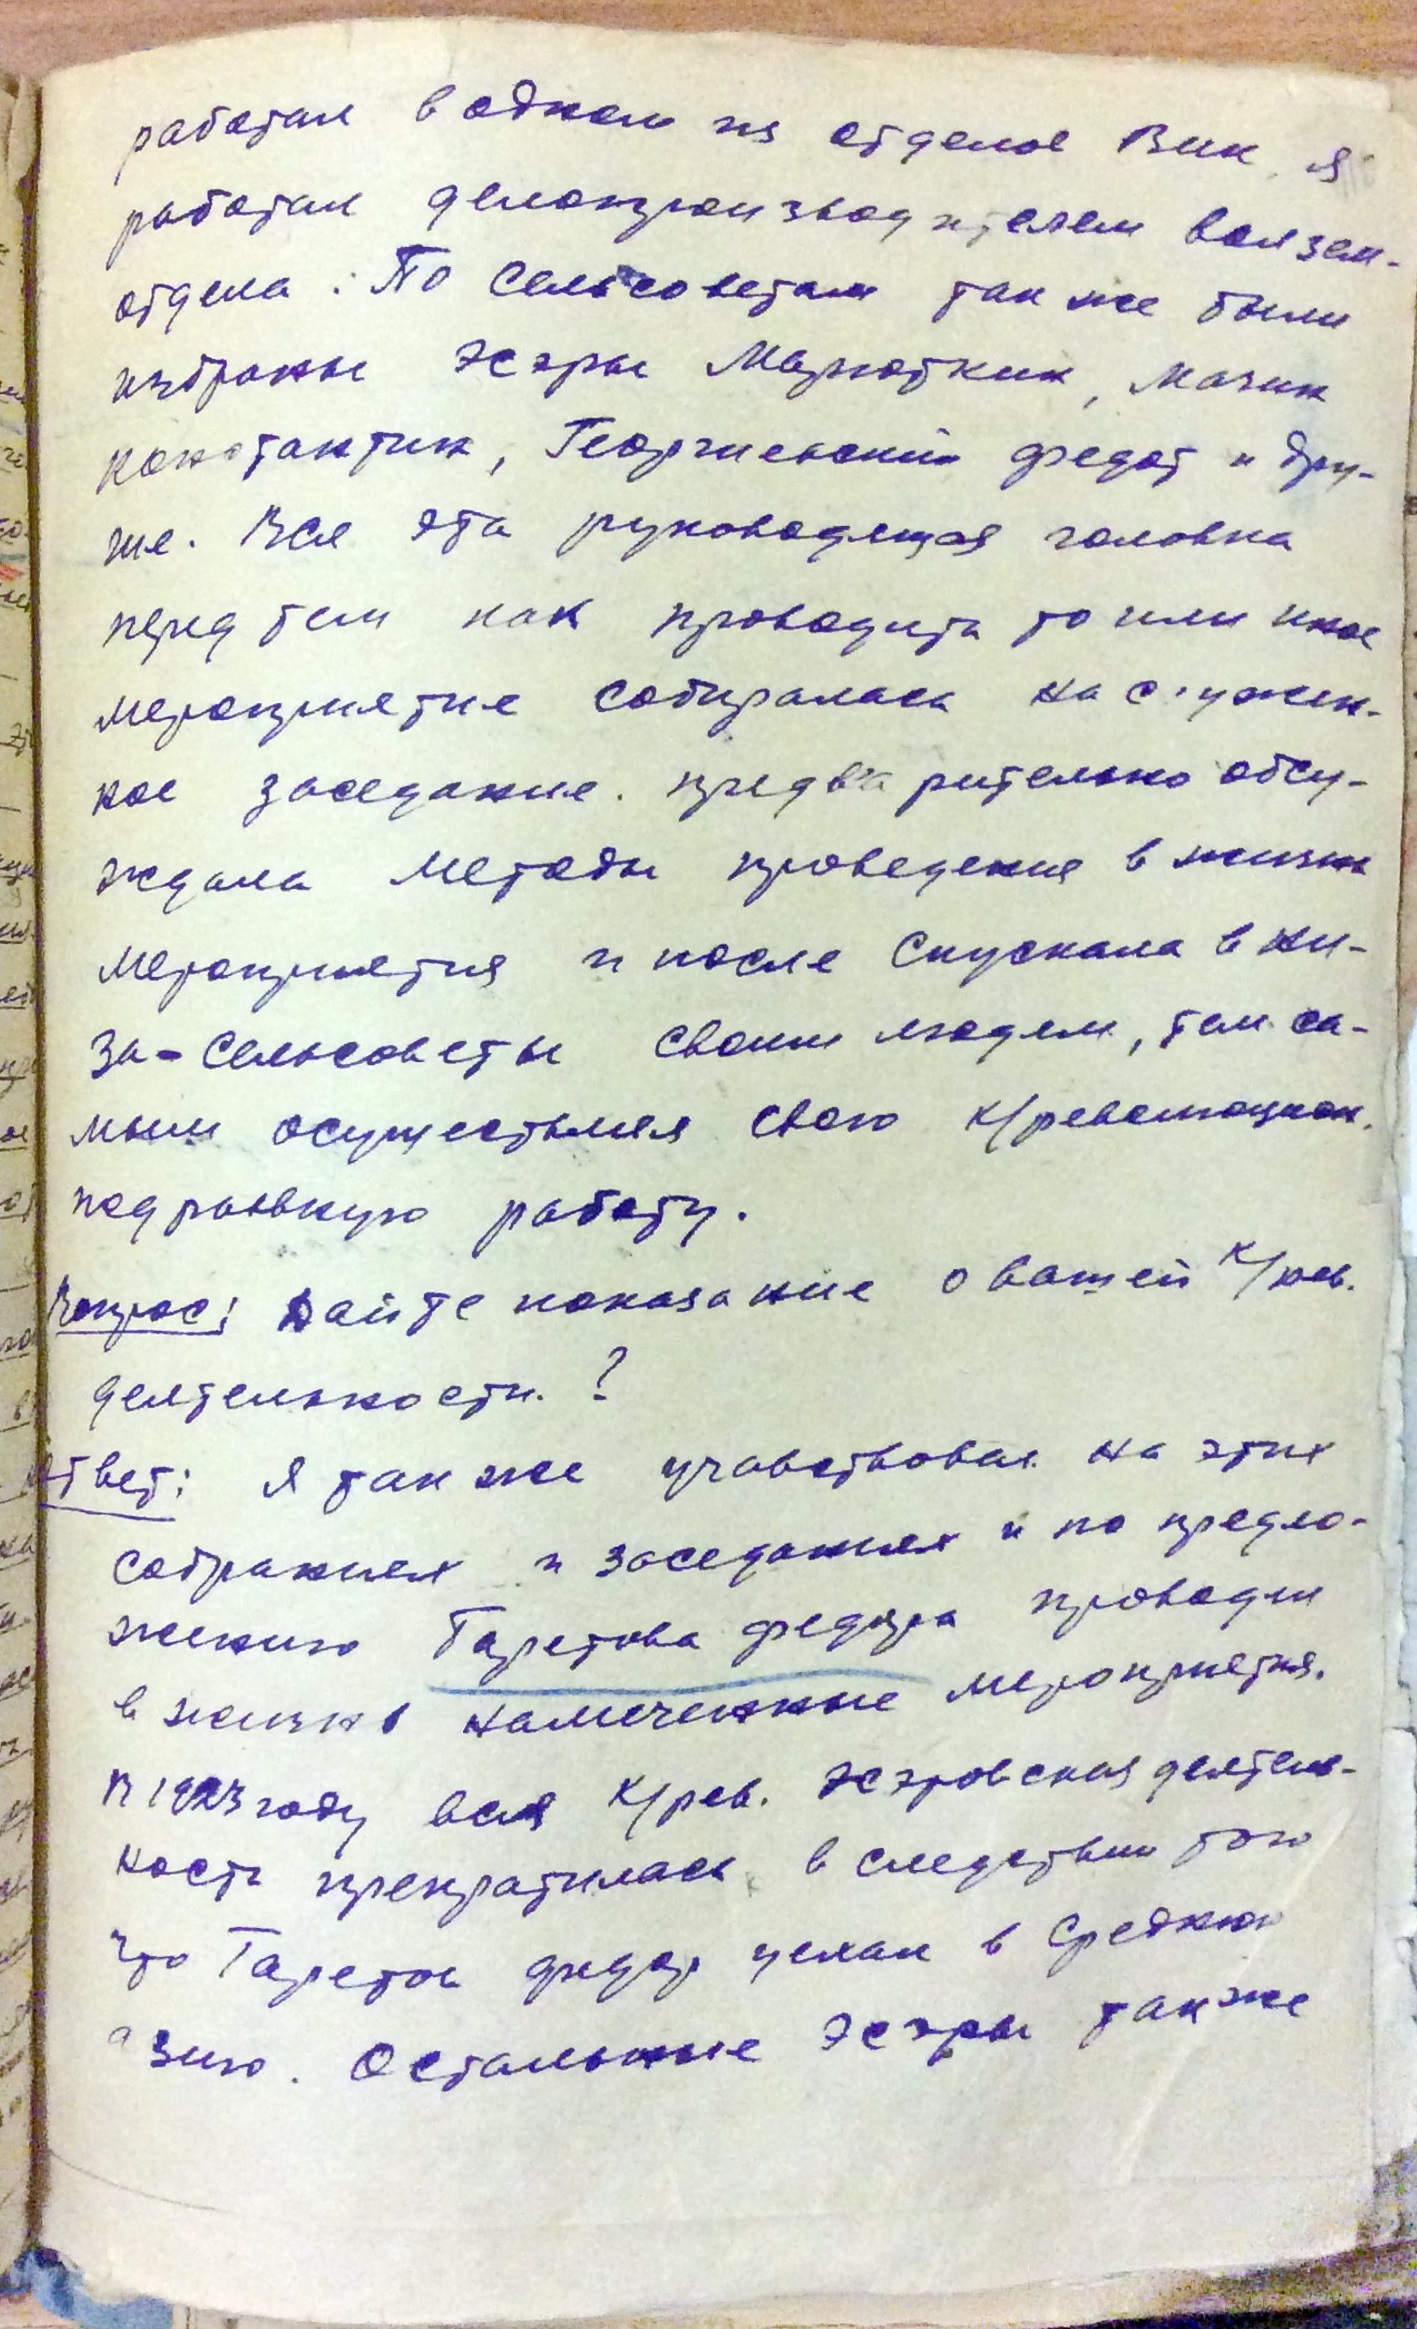 работал в одном из отделов Вик, я
работал делопроизводителем волзем-
отдела. По сельсоветам так же были
избраны эсэры Мазюткин, Мазин
Констактин, Георгиевский Федот и дру-
гие. Вся эта руководящая головка
перед тем как проводить то или иное
мероприятие собиралась на служеб-
ное заседание. предварительно обсу-
ждала методы проведения в жизнь
мероприятия и после спускала в ни-
за-сельсоветы своим людям, тем са-
мым осуществляя свою к/революцион.
подрывную работу.
Вопрос: Дайте показание о вашей к/рев.
деятельности.?
Ответ: Я так же учавствовал на этих
собраниях и заседаниях и по предло-
жению Таретова Федора проводил
в жизнь намеченные мероприятия.
В 1923 году вся к/рев. эсэровская деятель-
ность прекратилась в следствии того
что Таретов Федор уехал в Среднюю
азию. Остальные эсэры так же